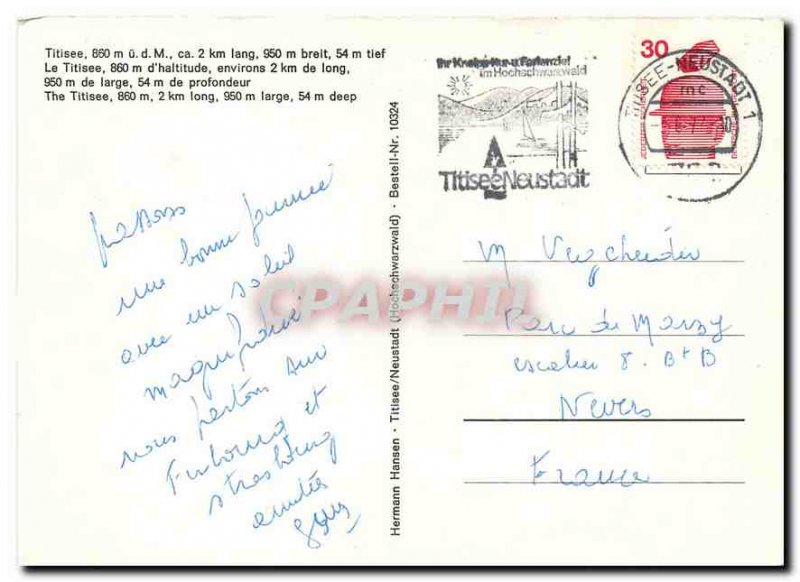 Titisee, 860 m ü. d. M., ca. 2 km lang, 950 m breit, 54 m tief
Le Titisee, 860 m d'haltitude, environs 2 km de long,
950 m de large, 54 m de profondeur
The Titisee, 860 m, 2 km long, 950 m large, 54 m deep
passons
une bonne journée
avec un soleil
magnifique
nous partons sur
Fribourg et
strasbourg
amitiés
Hermann Hansen · Titisee/Neustadt (Hochschwarzwald) · Bestell-Nr. 10324
im Hochschwarzwald
Titisee Neustadt
30
TITISEE-NEUSTADT 1
mc
M
Parc de Marzy
escalier 8. BtB
Nevers
France
CPAPHIL